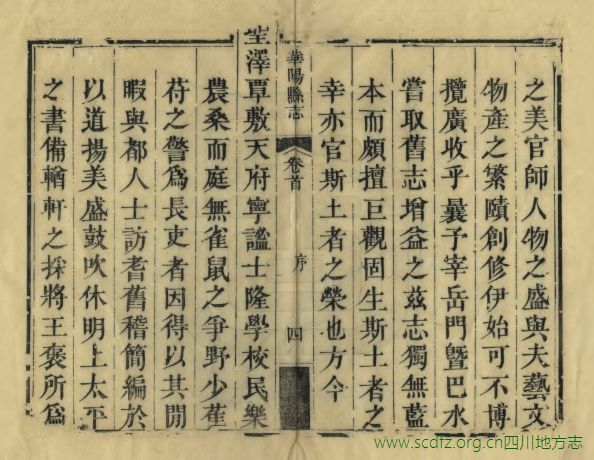 之美官師人物之盛與夫藝文
物產之繁賾創修伊始可不博
攬廣收乎曩予宰岳門暨巴水
嘗取舊志增益之茲志獨無藍
本而頗擅巨觀固生斯土者之
幸亦官斯土者之榮也方今
華陽縣志
卷首
序
四
聖澤覃敷天府寧謐士隆學校民樂
農桑而庭無雀鼠之爭野少萑
苻之警為長吏者因得以其閒
暇與都人士訪耆舊稽簡編於
以道揚美盛鼓吹休明上太平
之書備輶軒之採將王褒所為
www.scdfz.org.cn四川地方志